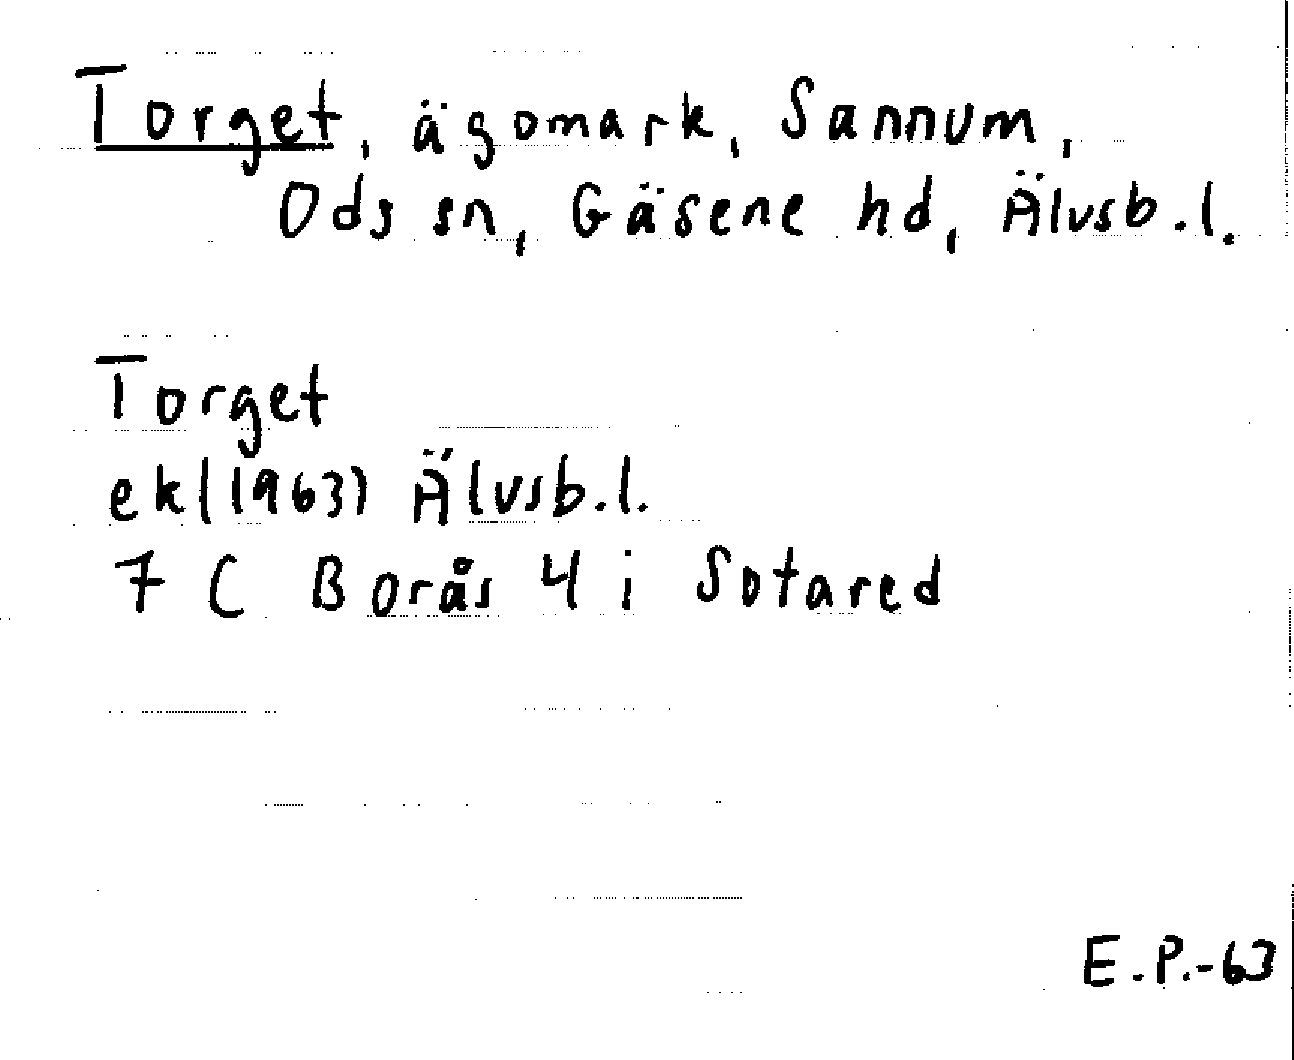 Torget, ägomark, Sannum,
Ods sn, Gäsene hd, Älvsb.l.
Torget
ek(1963) Älvsb.l.
7 C Borås 4 i Sotared
E.P.-63